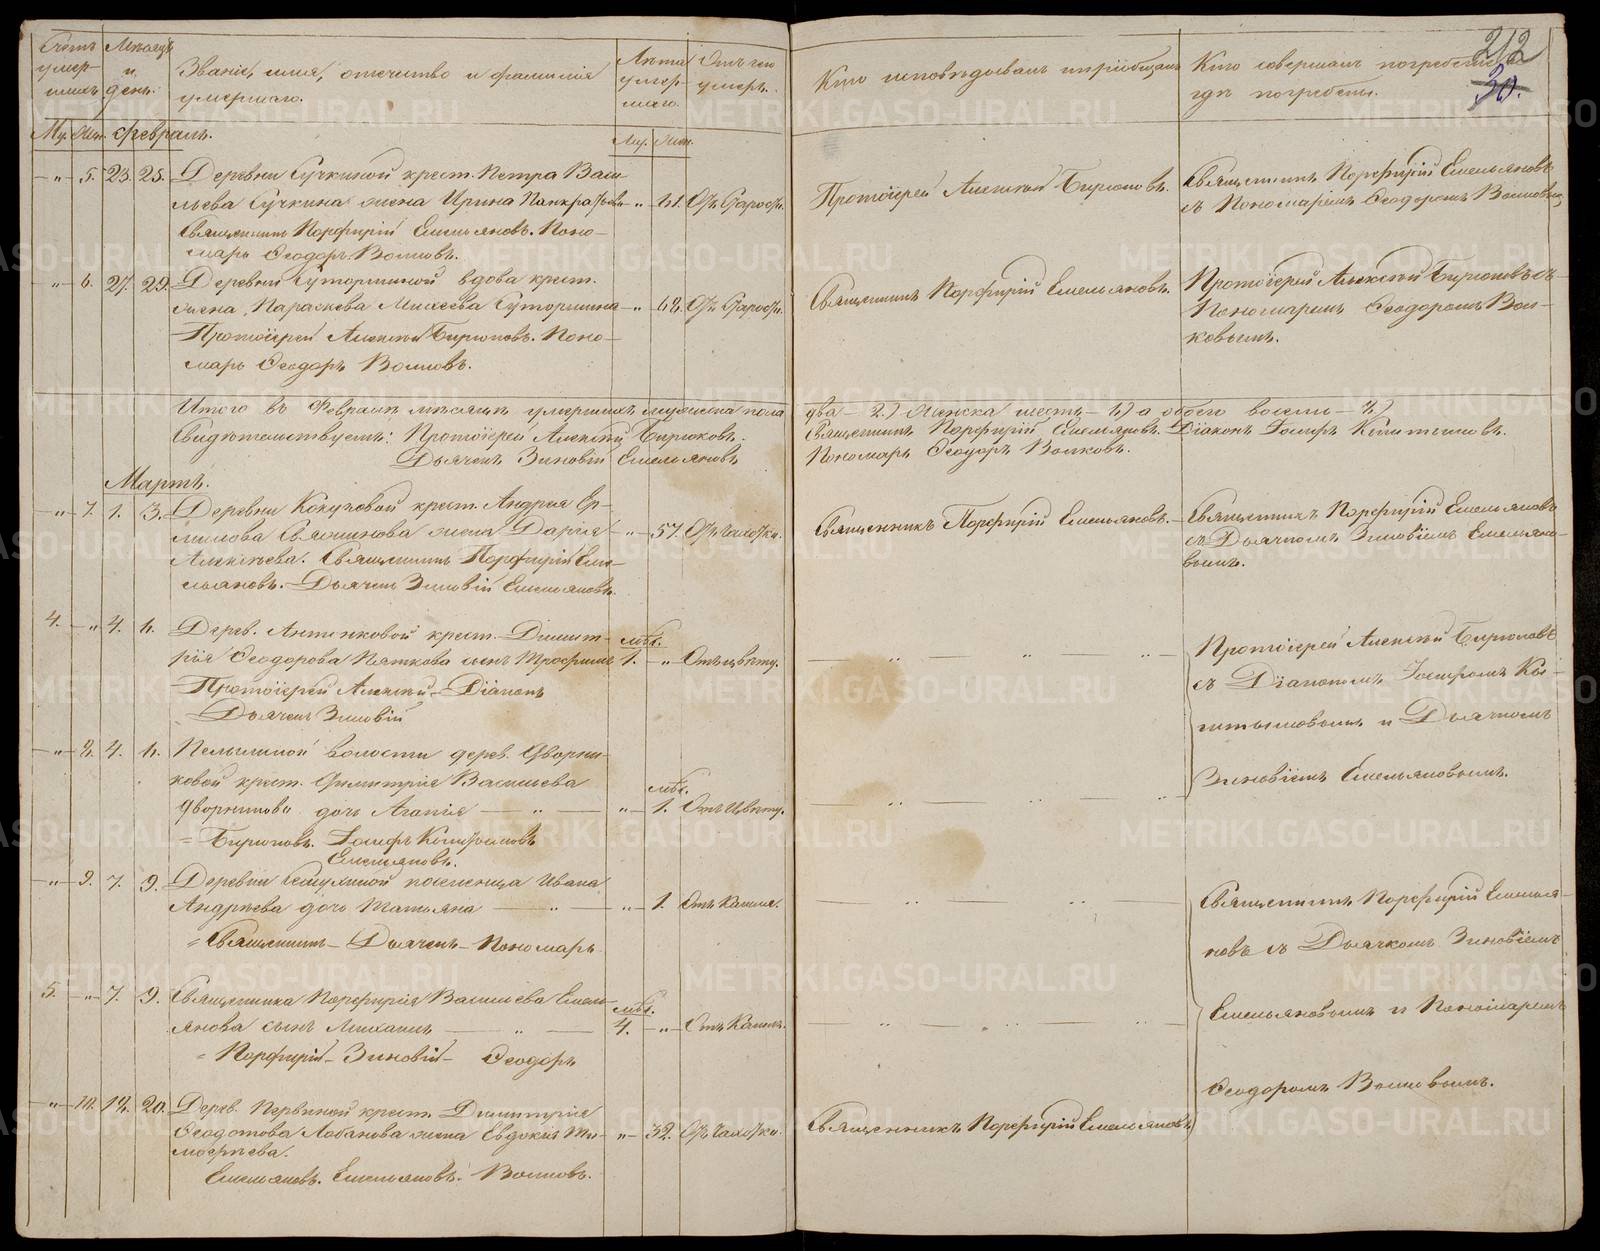 212
30.
Счетъ умершихъ
Мѣсяцъ и день.
Званіе, имя, отчество и фамилія умершаго.
Лѣта умершаго.
Отъ чего умеръ.
Кто исповѣдывалъ и пріобщалъ
Кто совершалъ погребеніе и гдѣ погребены.
Му. Жен. Февраль. Му. Жен.
" 5. 23. 25. Деревни Сучкиной крест. Петра Васи
льева Сучкина жена Ирина Панкратьева " 61. Отъ старости.
Священникъ Порфирій Емельяновъ. Поно-
марь Ѳеодоръ Волковъ.
Протоіерей Алексѣй Бирюковъ.
Священникъ Порфирій Емельяновъ
съ Пономаремъ Ѳеодоромъ Волковымъ
" 6. 27. 29. Деревни Суторминой вдова крест.
жена Параскева Моисеева Сутормина " 68. Отъ старости.
Протоіерей Алексѣй Бирюковъ. Поно-
марь Ѳеодоръ Волковъ.
Священникъ Порфирій Емельяновъ.
Протоіерей Алексѣй Бирюковъ съ
Пономаремъ Ѳеодоромъ Вол-
ковымъ.
Итого въ Февралѣ мѣсяцѣ умершихъ мужеска пола два - 2.) Женска шесть - 6) а обоего восемь - 8.)
Свидѣтельствуемъ: Протоіерей Алексѣй Бирюковъ. Священникъ Порфирій Емельяновъ. Діаконъ Іосифъ
Дьячекъ Зиновій Емельяновъ Пономарь Ѳеодоръ Волковъ.
Мартъ.
" 7. 1. 3. Деревни Кокуховой крест. Андрея Ер-
милова жена Дарія " 57. Отъ чахотки.
Алексѣева. Священникъ Порфирій Еме-
льяновъ. Дьячекъ Зиновій Емельяновъ.
Священникъ Порфирій Емельяновъ.
Священникъ Порфирій Емельяновъ
съ Дьячкомъ Зиновіемъ Емельяно-
вымъ.
4. " 4. 6. Дерев. крест. Димит-
рія Ѳеодорова Пяткова сынъ Трофимъ мѣс. 1. " Отъ цвѣту.
Протоіерей Алексѣй - Діаконъ
Дьячекъ Зиновій
Протоіерей Алексѣй Бирюковъ
съ Діакономъ Іосифомъ Ко-
и Дьячкомъ
Зиновіемъ Емельяновымъ.
" 8. 4. 6. волости дерев. Дворни-
ковой крест. Димитрія Васильева
Дворникова дочь Агапія " " мѣс. 1. Отъ цвѣту.
= Бирюковъ. Іосифъ
Емельяновъ.
" 9. 7. 9. Деревни поселенца Ивана
Андреева дочь Татьяна " " 1. Отъ кашля.
= Священникъ - Дьячекъ - Пономарь
Священникъ Порфирій Емелья-
новъ съ Дьячкомъ Зиновіемъ
Емельяновымъ и Пономаремъ
Ѳеодоромъ Волковымъ.
5. " 7. 9. Священника Порфирія Васильева Емель-
янова сынъ Михаилъ " мѣс. 4. " Отъ кашля.
= Порфирій - Зиновій - Ѳеодоръ
" 10. 18. 20. Дерев. Первиной крест. Димитрія
Ѳеодотова Лобанова жена Евдокія Ти- " 32. Отъ чахотки.
моѳеева.
Емельяновъ. Емельяновъ. Волковъ.
Священникъ Порфирій Емельяновъ
METRIKI.GASO-URAL.RU